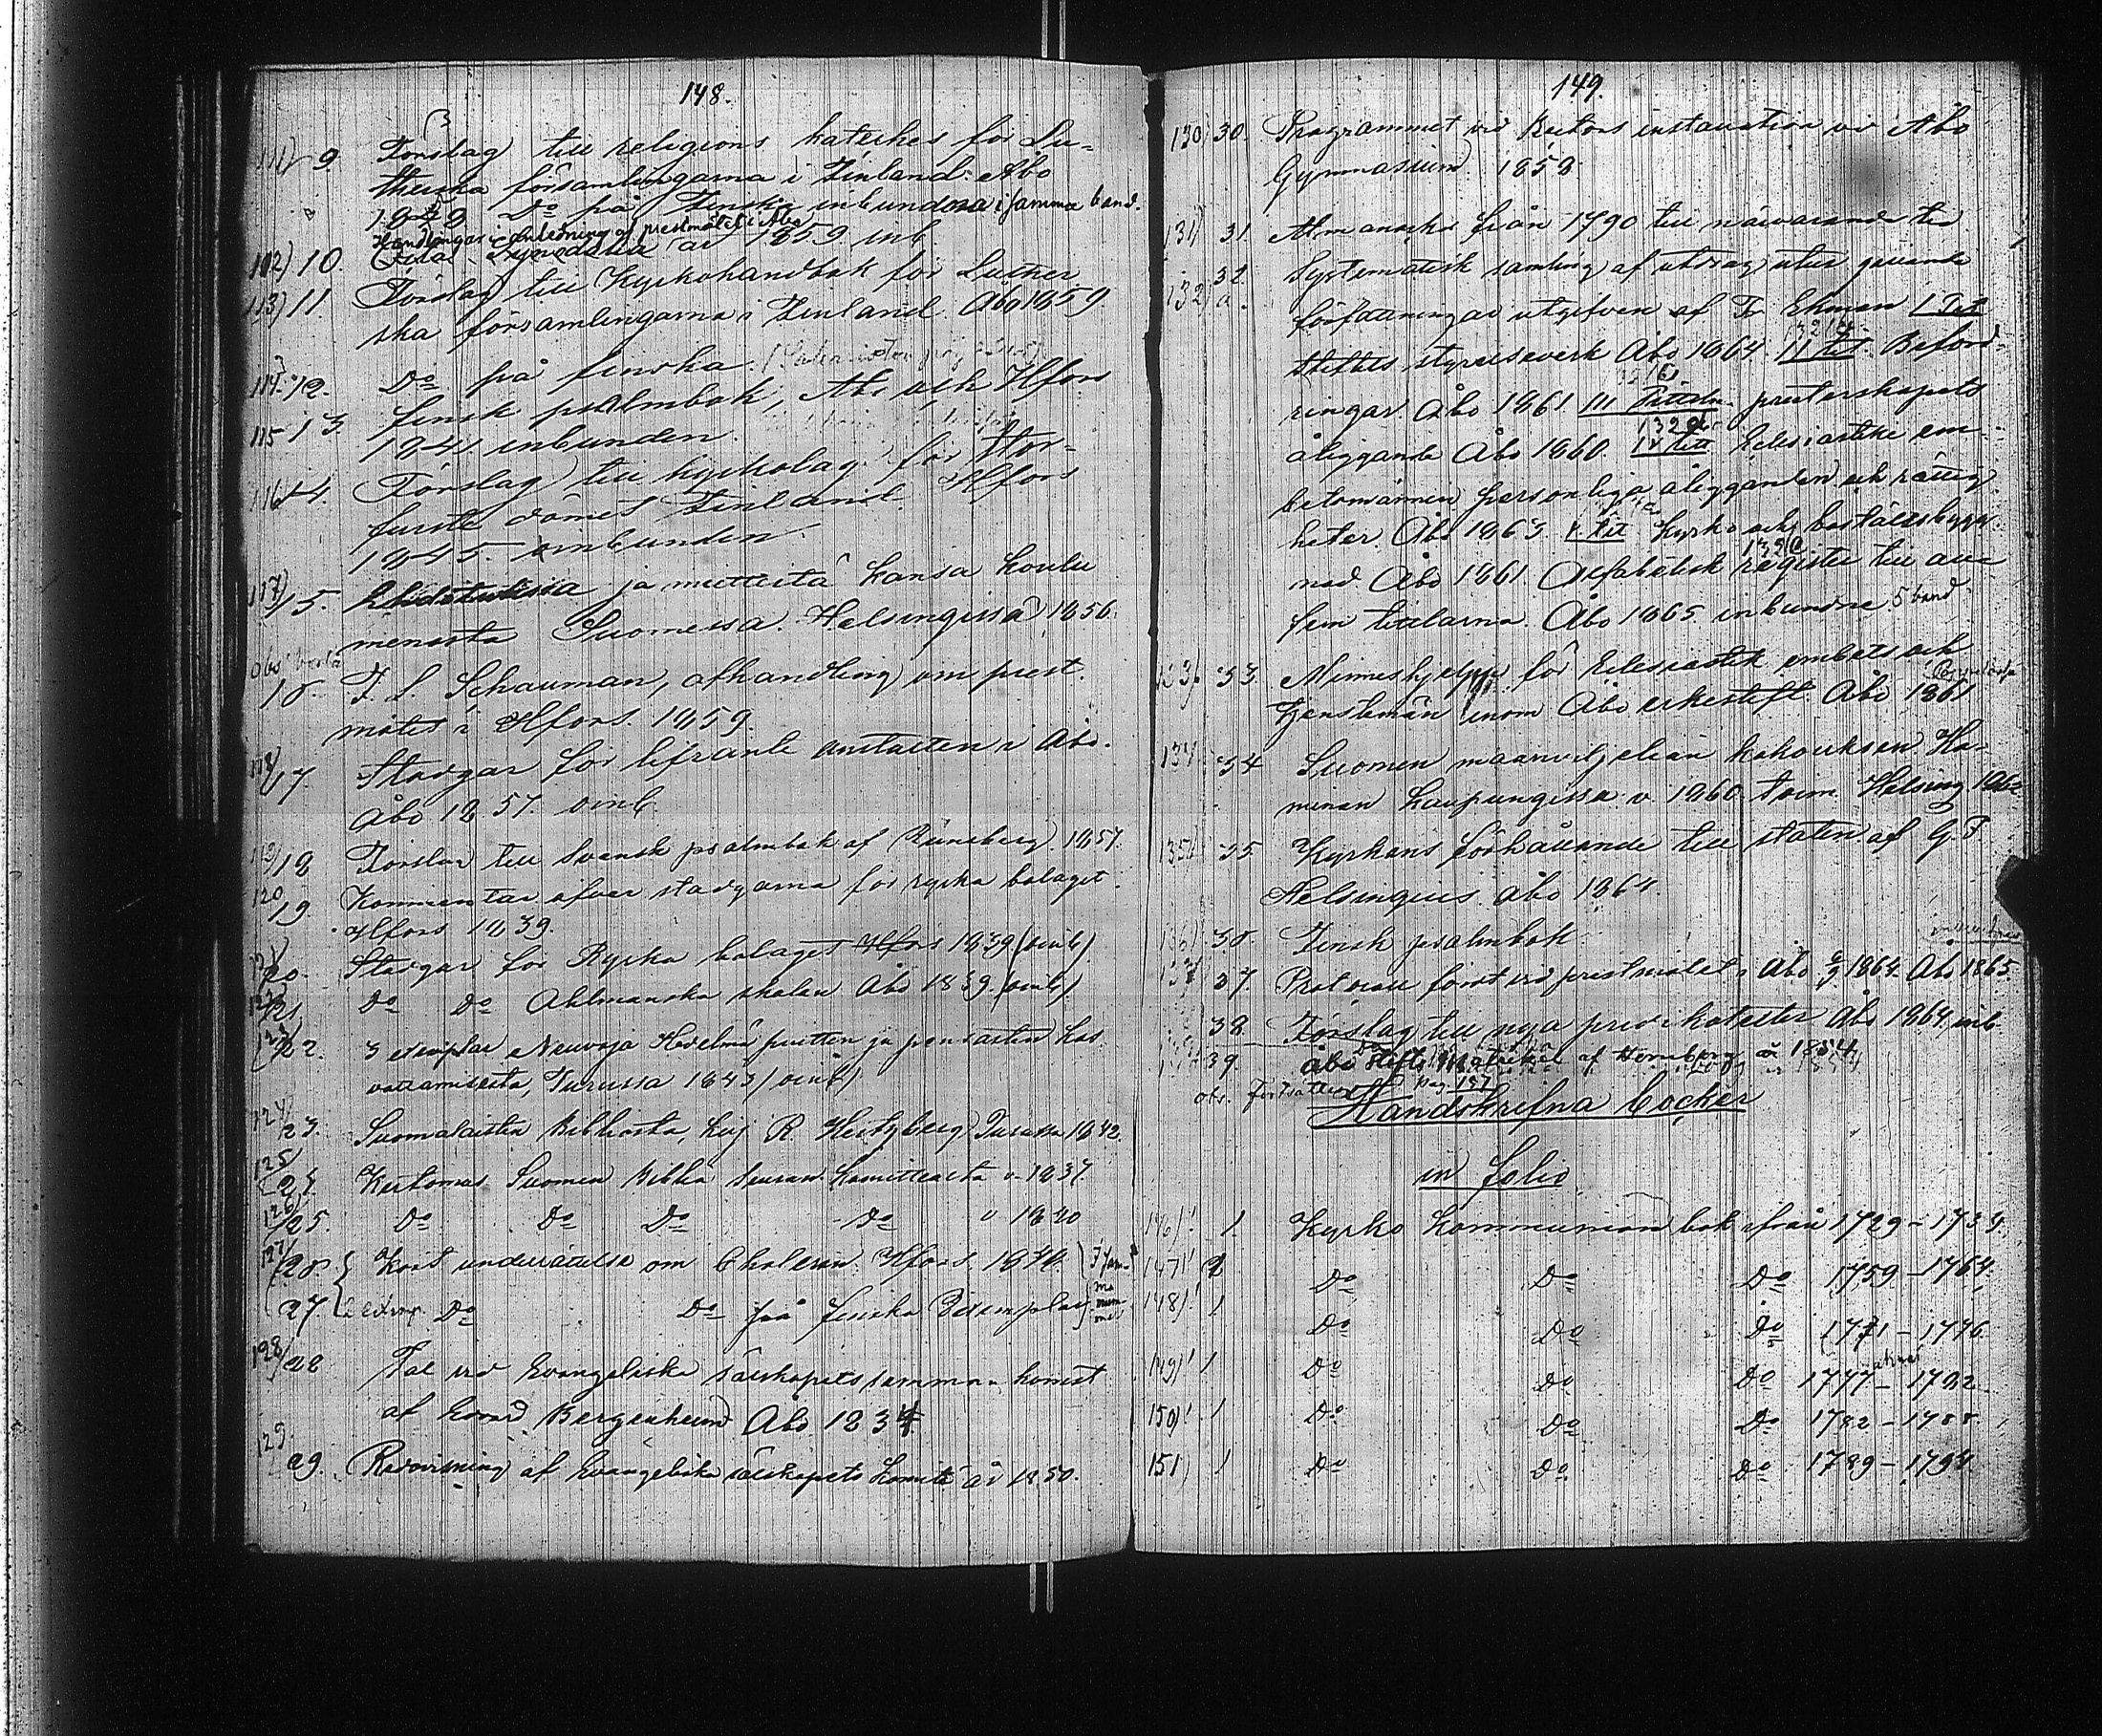 148.
111) 9. Förslag till religions katekes för Lu-
therska församlingarna i Finland. Åbo
Do på Finska inbundna i samma band.
Handlingar i anledning af prestmötet i Åbo
112) 10. Synodalia år 1859 inb.
113) 11. Förslag till Kyrkohandbok för Luther
ska församlingarna i Finland. Åbo 1859
114. 12. Do på finska.
115 13. finsk psalmbok, Åbo och Hfors
1841 inbunden.
116 14. Förslag till kyrkolag för Stor-
furste dömet Finland. Hfors
1845 inbunden
117) 15. ja mietteitä kansa koulu
Suomessa. Helsingissä 1856.
obs! borta
F. L. Schauman, afhandling om prest-
mötet i Hfors. 1859.
118/17. Stadgar för lifränte anstalten i Åbo.
Åbo 1857. oinb.
119/18 Förslag till Svensk psalmbok af Runeberg. 1857.
120 19. Kommentar öfver stadgarna för ryska bolaget
Hfors 1839.
20. Stadgar för Ryska bolaget Hfors 1839 (oinb)
21. Do Do Ahlmanska skolan Åbo 1839. (oinb)
22. 3 exemplar Neuvoja Hedelmä puitten ja pensasten kas
vattamisesta, Turussa 1843 (oinb)
124/23. Suomalaisten Bibliosta, kirj. R. Hertzberg Turussa 1842.
125/24. Kertomus Suomen Biblia Seuran komitteasta v. 1837.
126/25. Do Do Do Do " 1840
127/26. Kort underrättelse om Choleran. Hfors. I sam-
ma
num
mer
27. 2 exemp. Do Do på finska
128/28 Tal vid Evangeliska sällskapets samman komst
af Edvard Bergenheim Åbo 1834
129. 29. Redovisning af Evangeliska sällskapets komité år 1850.
149.
130/30. Programmet vid Rectors installation vid Åbo
Gymnasium. 1858
131) 31. Almanackor från 1790 till närvarande tid
132) 32. a. Systematisk samling af utdrag utur gällande
författningar utgifven af Fr. Ekman I Tit
Stiftets styrelseverk Åbo 1864. II tit. Beford-
ringar. Åbo 1861 III Titeln. presterskapets
132 d.
åliggande Åbo 1860. IV titt Eclesiastike em-
betsmännen personliga åligganden och rättig
heter. Åbo 1863. V tit Kyrko och boställsbygg-
nad. Åbo 1861 Alfabetisk register till alla
fem titlarna. Åbo 1865. inbundne 5 band
133) 33. Minneshjelp för Eclesiastik embets och
tjenstemän inom Åbo erkestift. Åbo 1861
134 34 Suomen maanviljeliäin kokouksen Ha-
minan kaupungissa v. 1860. toim. Helsing 1862
135/ 35. Kyrkans förhållande till staten. af G. F.
Helsingius. Åbo 1864.
136/ 36. Finsk psalmbok
137/ 37. Protocoll fördt vid prestmötet i Åbo 1864. Åbo 1865
38. Förslag till nya predikotexter Åbo 1864. inb.
39. Åbo Stifts Matrikel af Hernberg år 1884
obs. Fortsättes pag. 157
Handskrifna böcker
in folio
146) 1. Kyrko kommunion bok ifrån 1729 – 1734.
147) 1 Do Do Do 1759 – 1764.
148) 1 Do Do Do 1771 – 1776.
149) 1 Do Do Do 1777 – 1782.
150) 1 Do Do Do 1782 – 1788.
151) 1 Do Do Do 1789 – 1794.